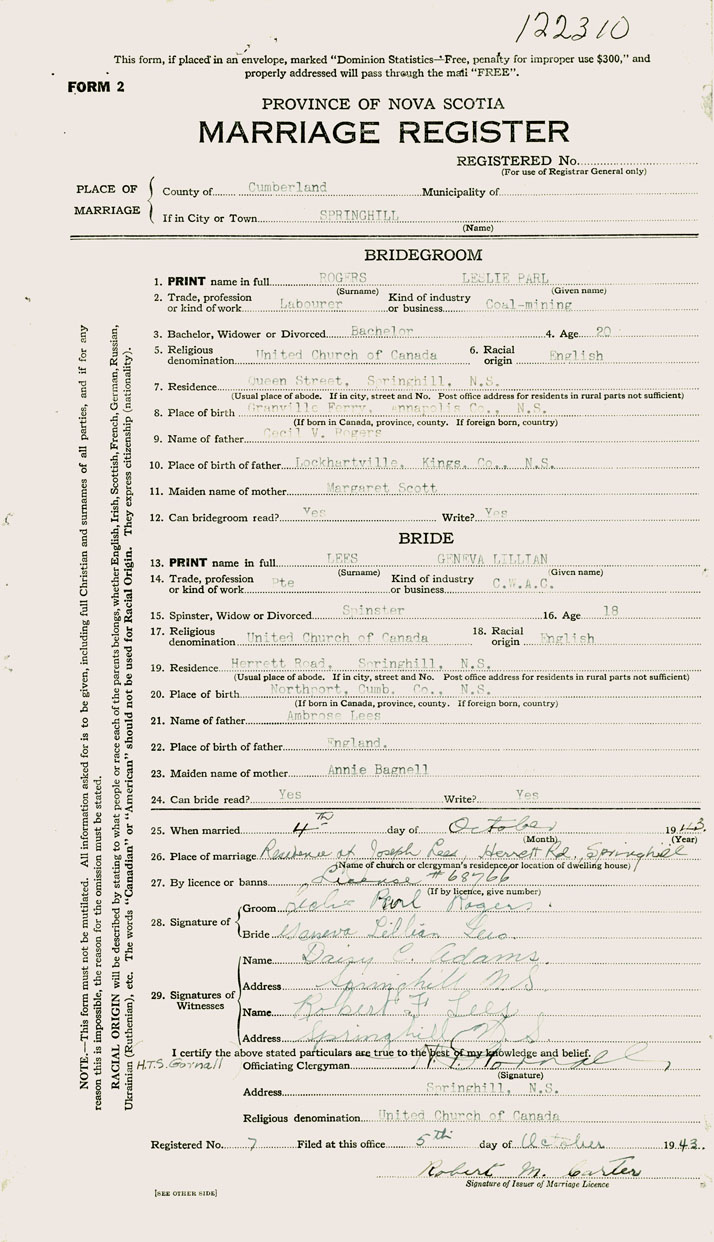 122310
This form, if placed in an envelope, marked “Dominion Statistics—Free, penalty for improper use $300,” and
properly addressed will pass through the mail “FREE”.
FORM 2
PROVINCE OF NOVA SCOTIA
MARRIAGE REGISTER
REGISTERED No.
(For use of Registrar General only)
PLACE OF MARRIAGE
County of Cumberland Municipality of
If in City or Town SPRINGHILL
(Name)
BRIDEGROOM
1. PRINT name in full ROGERS LESLIE PARL
(Surname) (Given name)
2. Trade, profession or kind of work Labourer Kind of industry or business Coal-mining
3. Bachelor, Widower or Divorced Bachelor 4. Age 20
5. Religious denomination United Church of Canada 6. Racial origin English
7. Residence Queen Street, Springhill, N.S.
(Usual place of abode. If in city, street and No. Post office address for residents in rural parts not sufficient)
8. Place of birth Granville Ferry, Annapolis Co., N.S.
(If born in Canada, province, county. If foreign born, country)
9. Name of father Cecil V. Rogers
10. Place of birth of father Lockhartville, Kings, Co., N.S.
11. Maiden name of mother Margaret Scott
12. Can bridegroom read? Yes Write? Yes
BRIDE
13. PRINT name in full LEES GENEVA LILLIAN
(Surname) (Given name)
14. Trade, profession or kind of work Pte Kind of industry or business C.W.A.C.
15. Spinster, Widow or Divorced Spinster 16. Age 18
17. Religious denomination United Church of Canada 18. Racial origin English
19. Residence Herrett Road, Springhill, N.S.
(Usual place of abode. If in city, street and No. Post office address for residents in rural parts not sufficient)
20. Place of birth Northport, Cumb. Co., N.S.
(If born in Canada, province, county. If foreign born, country)
21. Name of father Ambrose Lees
22. Place of birth of father England.
23. Maiden name of mother Annie Bagnell
24. Can bride read? Yes Write? Yes
25. When married 4th day of October 1943.
(Month) (Year)
26. Place of marriage Residence of Joseph Lees, Herrett Rd, Springhill
(Name of church or clergyman's residence, or location of dwelling house)
27. By licence or banns License # 68766
(If by licence, give number)
28. Signature of
Groom Leslie Parl Rogers.
Bride Geneva Lillian Lees.
29. Signatures of Witnesses
Name Daisy C. Adams.
Address Springhill N.S.
Name Robert F. Lees
Address Springhill N.S.
I certify the above stated particulars are true to the best of my knowledge and belief.
H.T.S. Gornall Officiating Clergyman
(Signature)
Address Springhill, N.S.
Religious denomination United Church of Canada
Registered No. 7 Filed at this office 5th day of October 1943.
Robert M. Carter
Signature of Issuer of Marriage Licence
[SEE OTHER SIDE]
NOTE.—This form must not be mutilated. All information asked for is to be given, including full Christian and surnames of all parties, and if for any
reason this is impossible, the reason for the omission must be stated.
RACIAL ORIGIN will be described by stating to what people or race each of the parents belongs, whether English, Irish, Scottish, French, German, Russian,
Ukrainian (Ruthenian), etc. The words “Canadian” or “American” should not be used for Racial Origin. They express citizenship (nationality).